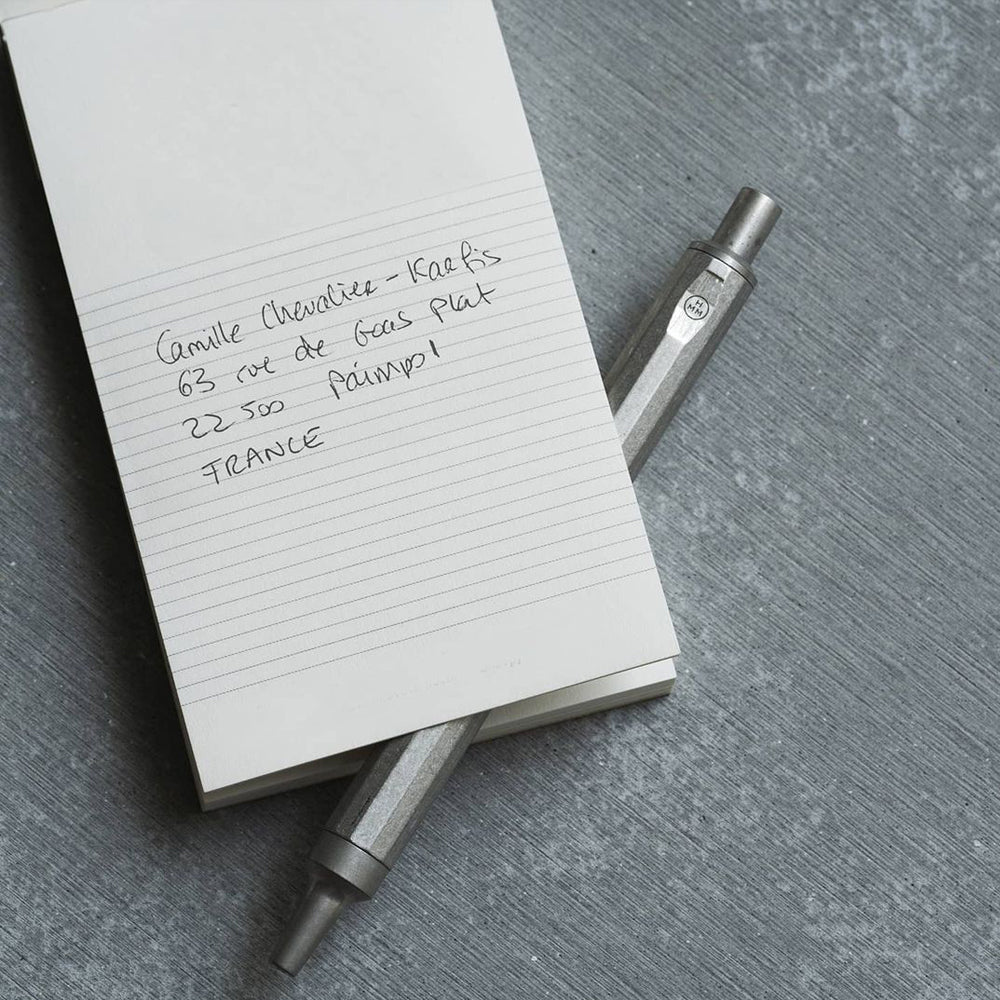 Camille Chevalier-Karfis
63 rue de Goas Plat
22500 Paimpol
FRANCE
H
MM